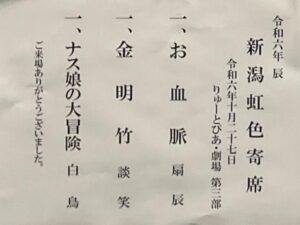 令和六年 辰
新潟虹色寄席
令和六年十月二十七日
りゅーとぴあ・劇場 第三部
一、お血脈 扇辰
一、金明竹 談笑
一、ナス娘の大冒険 白鳥
ご来場ありがとうございました。